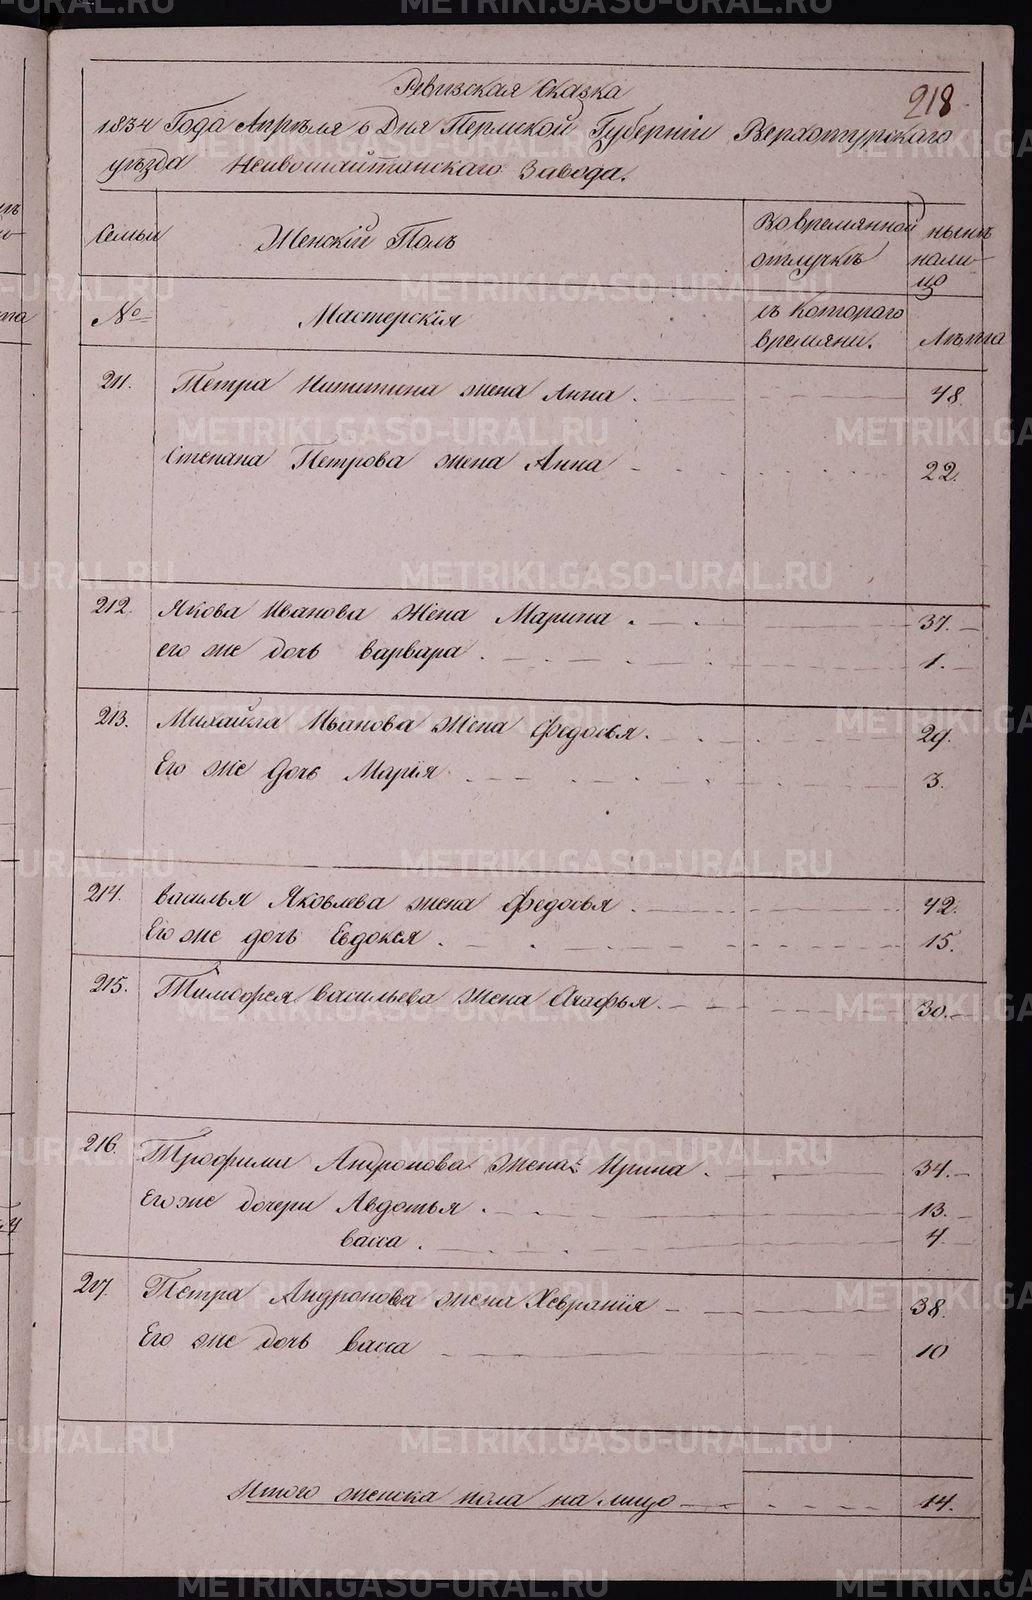 218
Ревизская Сказка
1834 Года Апреля 6 Дня Пермской Губернiи Верхотурскаго
уезда Нейвошайтанскаго Завода.
Семьи Женскiй Полъ Во времянной отлучкѣ ныне налицо
№ Мастерскiя съ котораго времяни. Лѣта
211. Петра Никитина жена Анна 48.
Степана Петрова жена Анна 22.
212. Якова Иванова жена Марина 37.
его же дочь варвара 1.
213. Михайла Иванова жена Федосья 29.
Его же дочь Марiя 3.
214. василья Яковлева жена Федосья 42.
Его же дочь Евдокея 15.
215. Тимофея васильева жена Агафья 30.
216. Трофима Андронова жена Ирина 34.
Его же дочери Авдотья 13.
васса 4.
217. Петра Андронова жена Хеврания 38.
Его же дочь васса 10
Итого женска пола на лицо 14.
METRIKI.GASO-URAL.RU